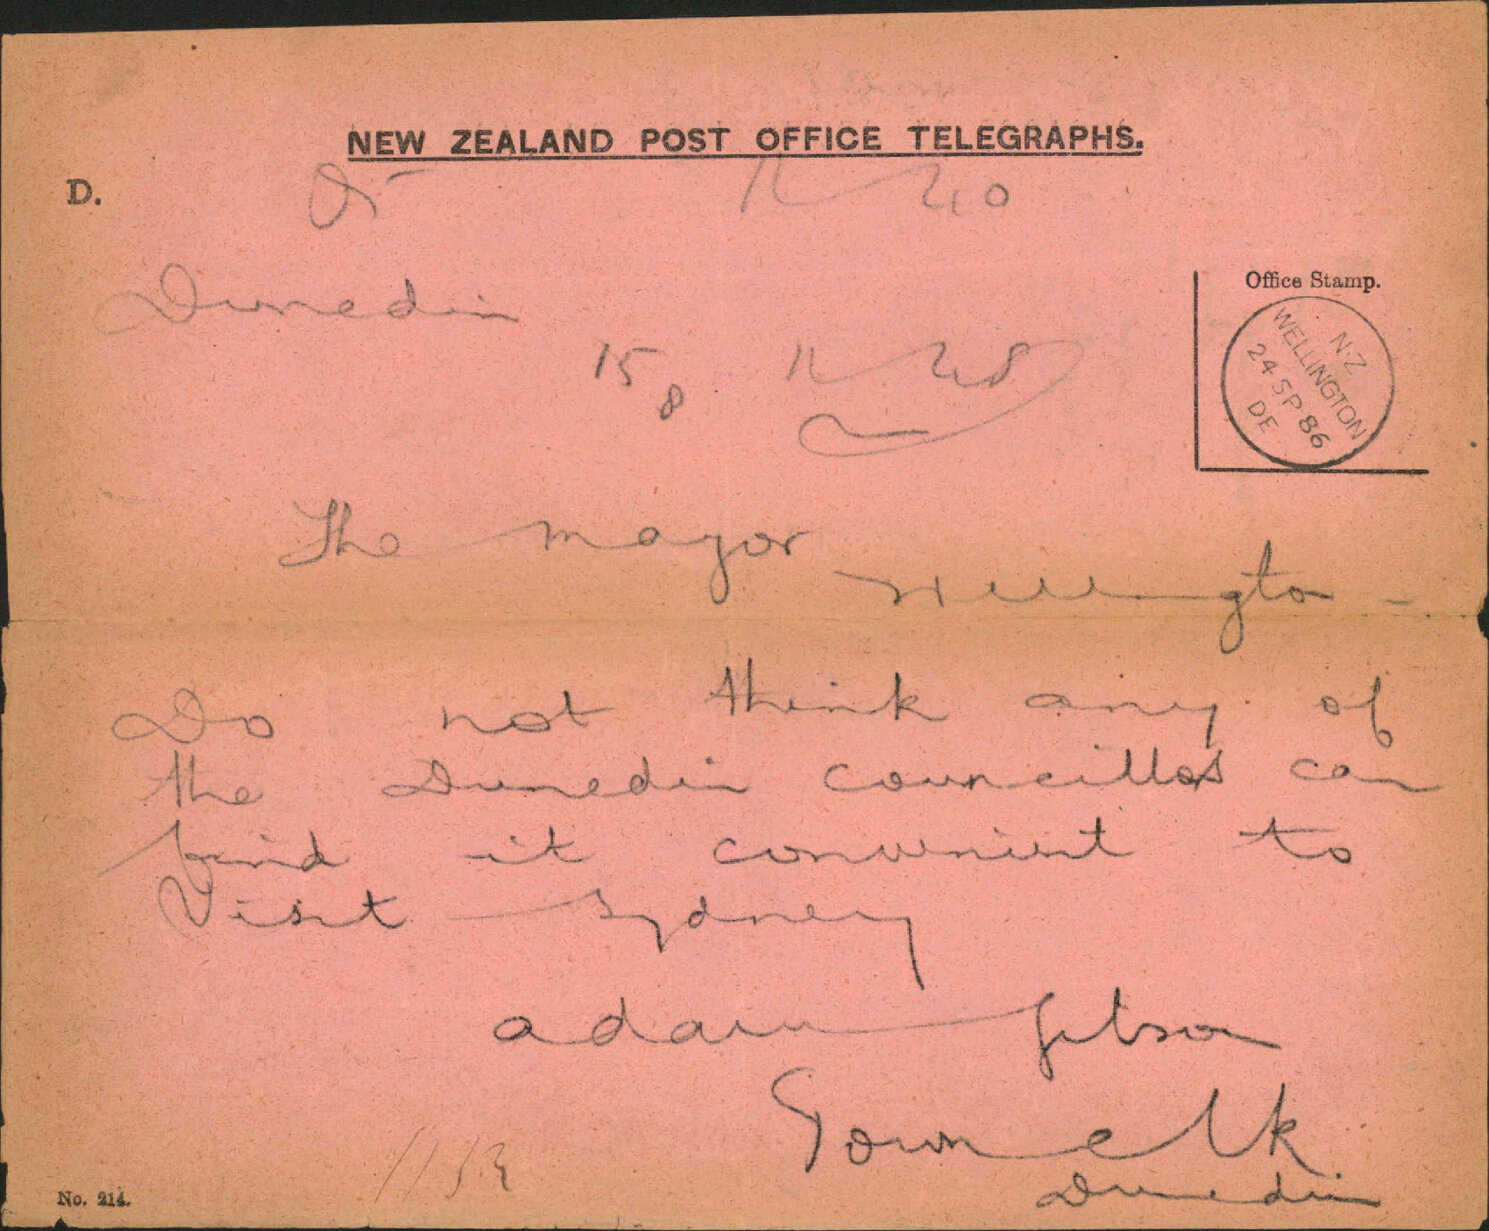 NEW ZEALAND POST OFFICE TELEGRAPHS.
D.
Dunedin
Office Stamp.
N·Z
WELLINGTON
24 SP 86
DE
15 8
The mayor
Wellington -
Do not think any of
the Dunedin councillos can
find it convenient to
Visit Sydney
adam Gibson
Town Clk
Dunedin
1153
No. 214.